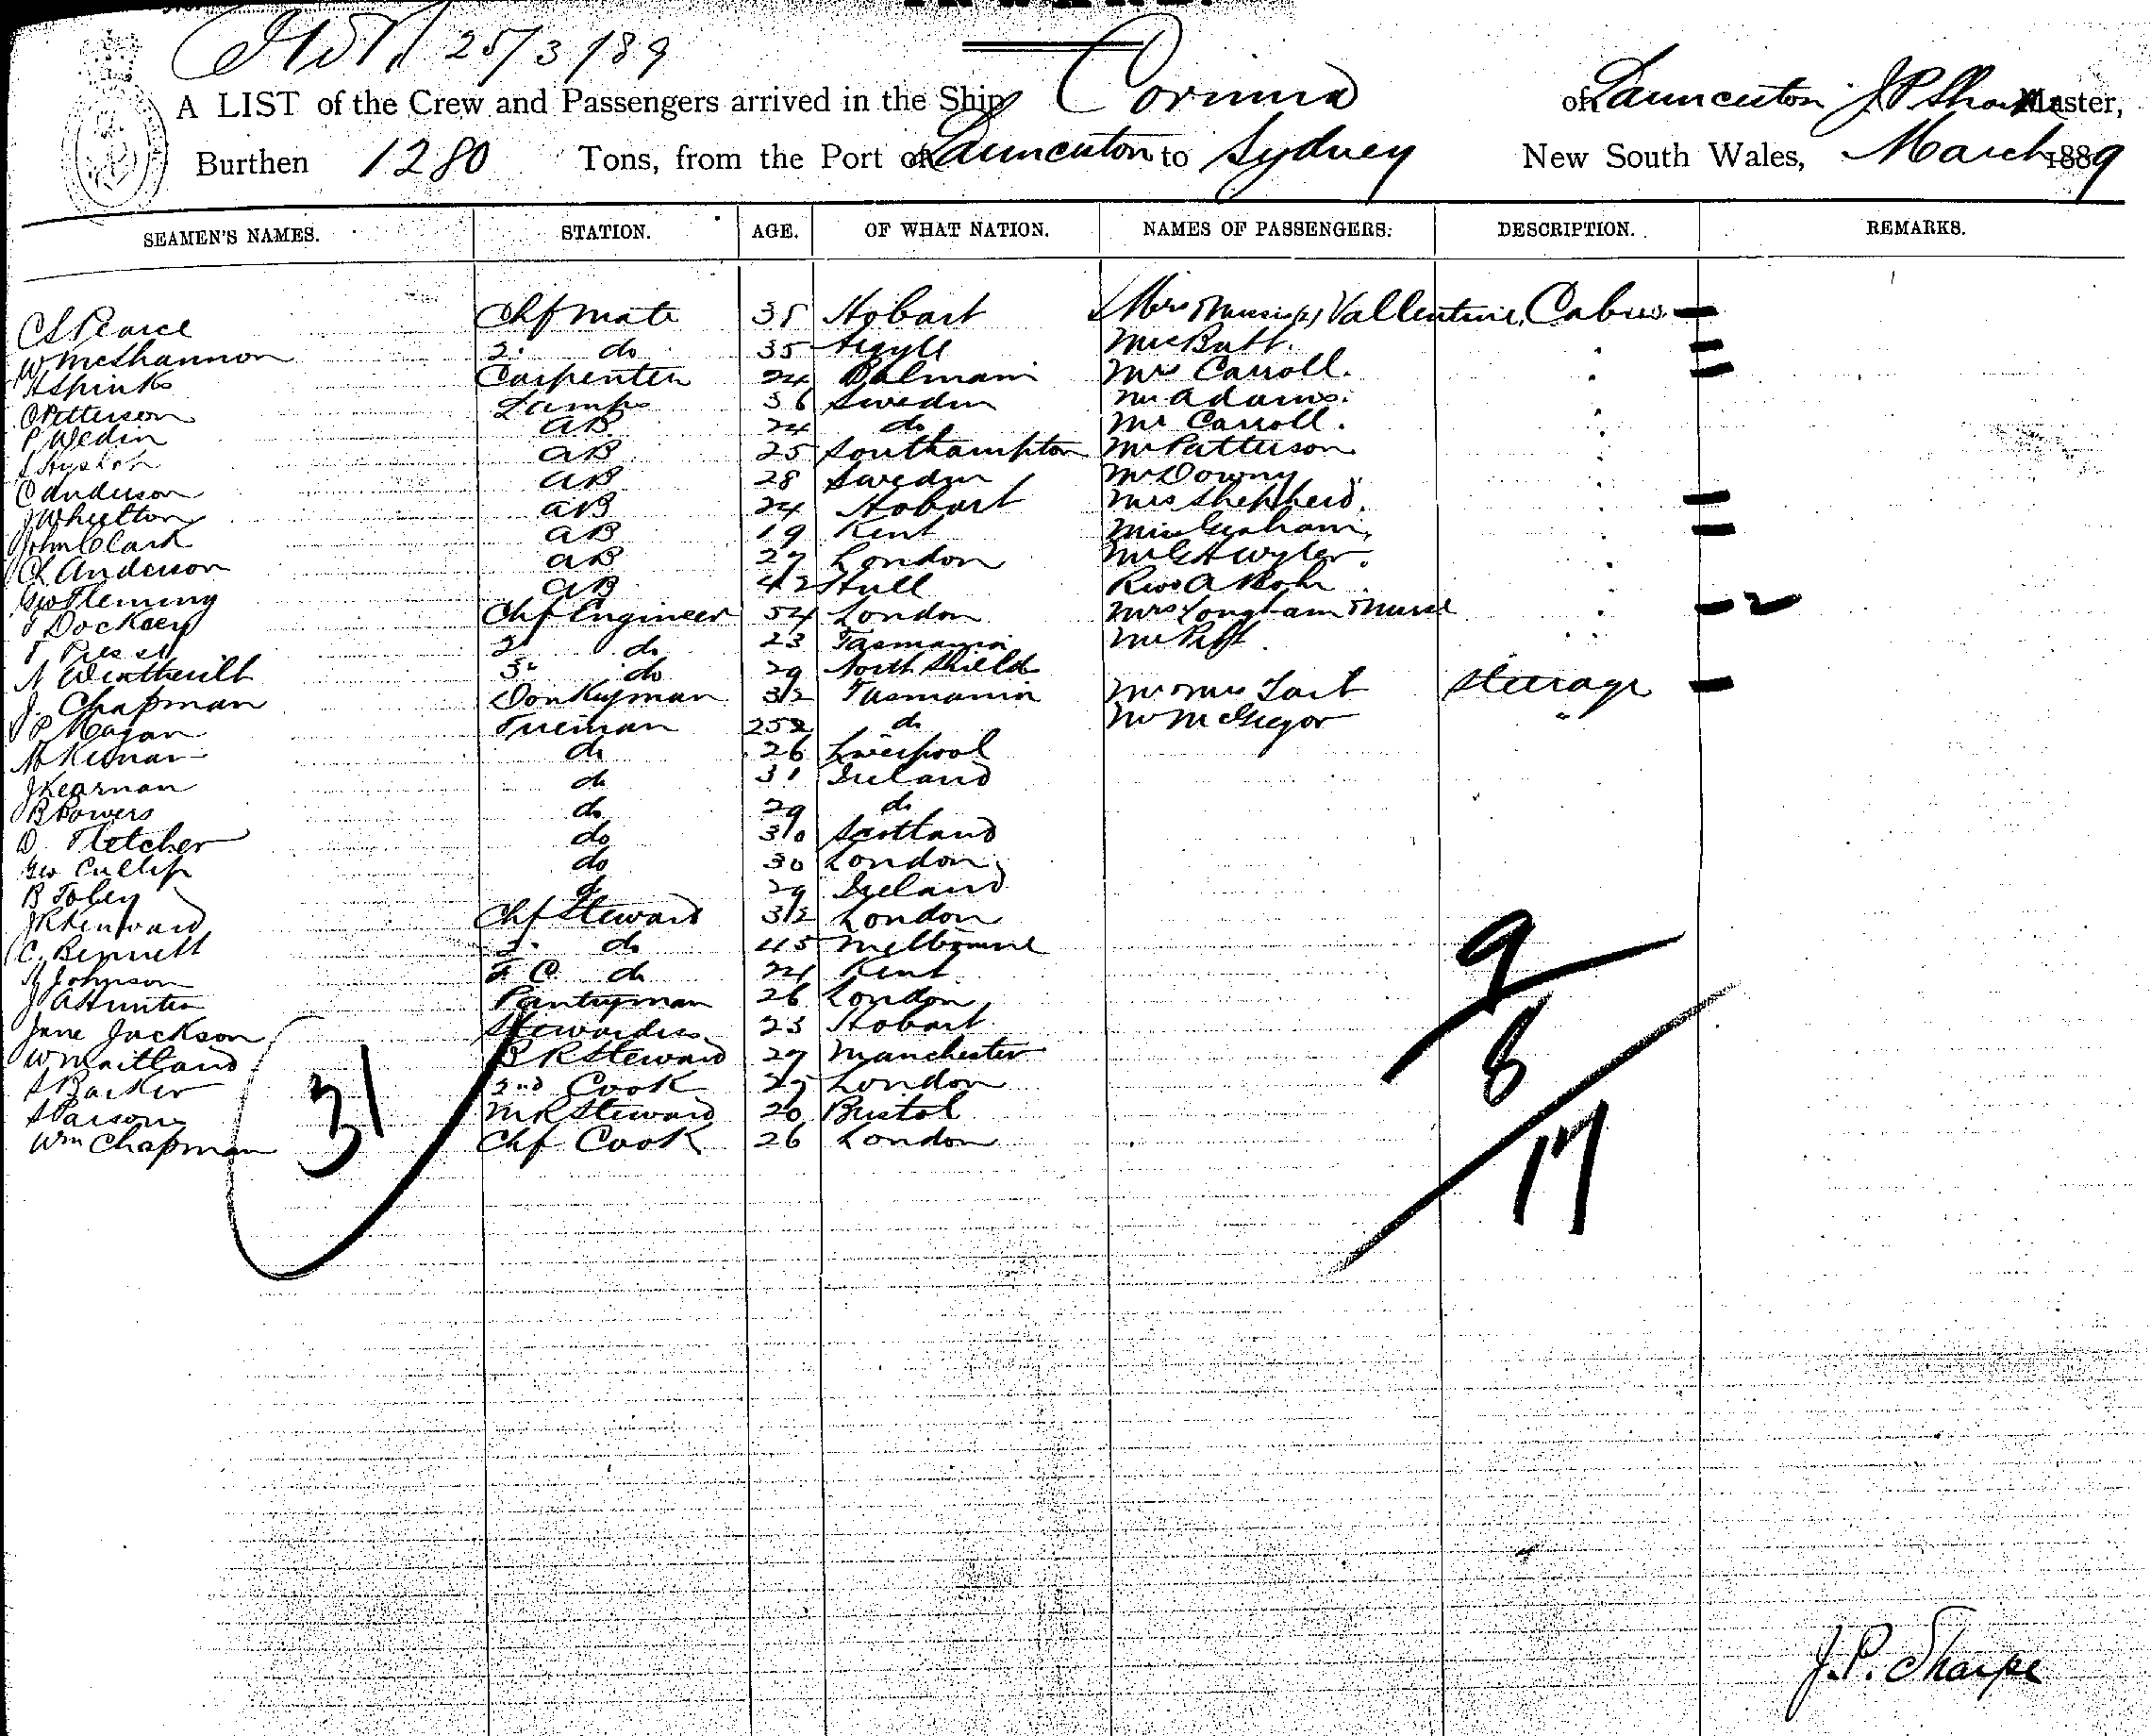 25/3/89
A LIST of the Crew and Passengers arrived in the Ship Corinna of Launceston J P Sharpe Master,
Burthen 1280 Tons, from the Port of Launceston to Sydney New South Wales, March 1889
SEAMEN'S NAMES. STATION. AGE. OF WHAT NATION. NAMES OF PASSENGERS. DESCRIPTION. REMARKS.
C S Pearce Chf Mate 35 Hobart Mrs Vallentine Cabin
W McShannon 2 do 35 Argyll Mrs Butt "
H Spinks Carpenter 24 Balmain Mrs Carroll. "
O Petterson Lamps 36 Sweden Mr Adams. "
P Wedin AB 24 do Mr Carroll. "
Hyslop AB 25 Southampton Mr Patterson "
C Anderson AB 28 Sweden Mr Downy "
J Wheelton AB 24 Hobart Mrs Shepherd. "
John Clark AB 19 Kent Miss Graham. "
Ch Anderson AB 27 London Mr G H Wyler. "
Geo Fleming AB 42 Hull Revd A "
T Dockery Chf Engineer 54 London Mrs Longham Nurse " 2
T 2 do 23 Tasmania Mr "
N 3 do 29 North Shields
J. Chapman Donkeyman 32 Tasmania Mr Mrs Tart Steerage
P Hagan Fireman 25 do Mr McGregor "
M Kernan do 26 Liverpool
J Kearnan do 31 Ireland
B Powers do 29 do
D. Fletcher do 30 Scotland
Geo Cullip do 30 London
B Tobey do 29 Ireland
J R Kenward Chf Steward 32 London
C. Bennett 2 do 45 Melbourne
Johnson F. C do 24 Kent
J A Hunter Pantryman 26 London
Jane Jackson Stewardess 23 Hobart
W Maitland B R Steward 27 Manchester
S Barker 2nd Cook 25 London
S Parsons M R Steward 20 Bristol
Wm Chapman Chf Cook 26 London
31
9
8
17
J. P. Sharpe